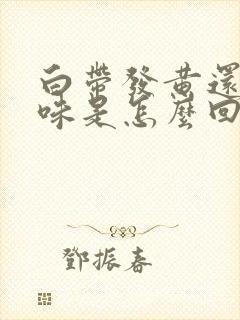 白帶發黃還
味是怎麼回
鄧振春